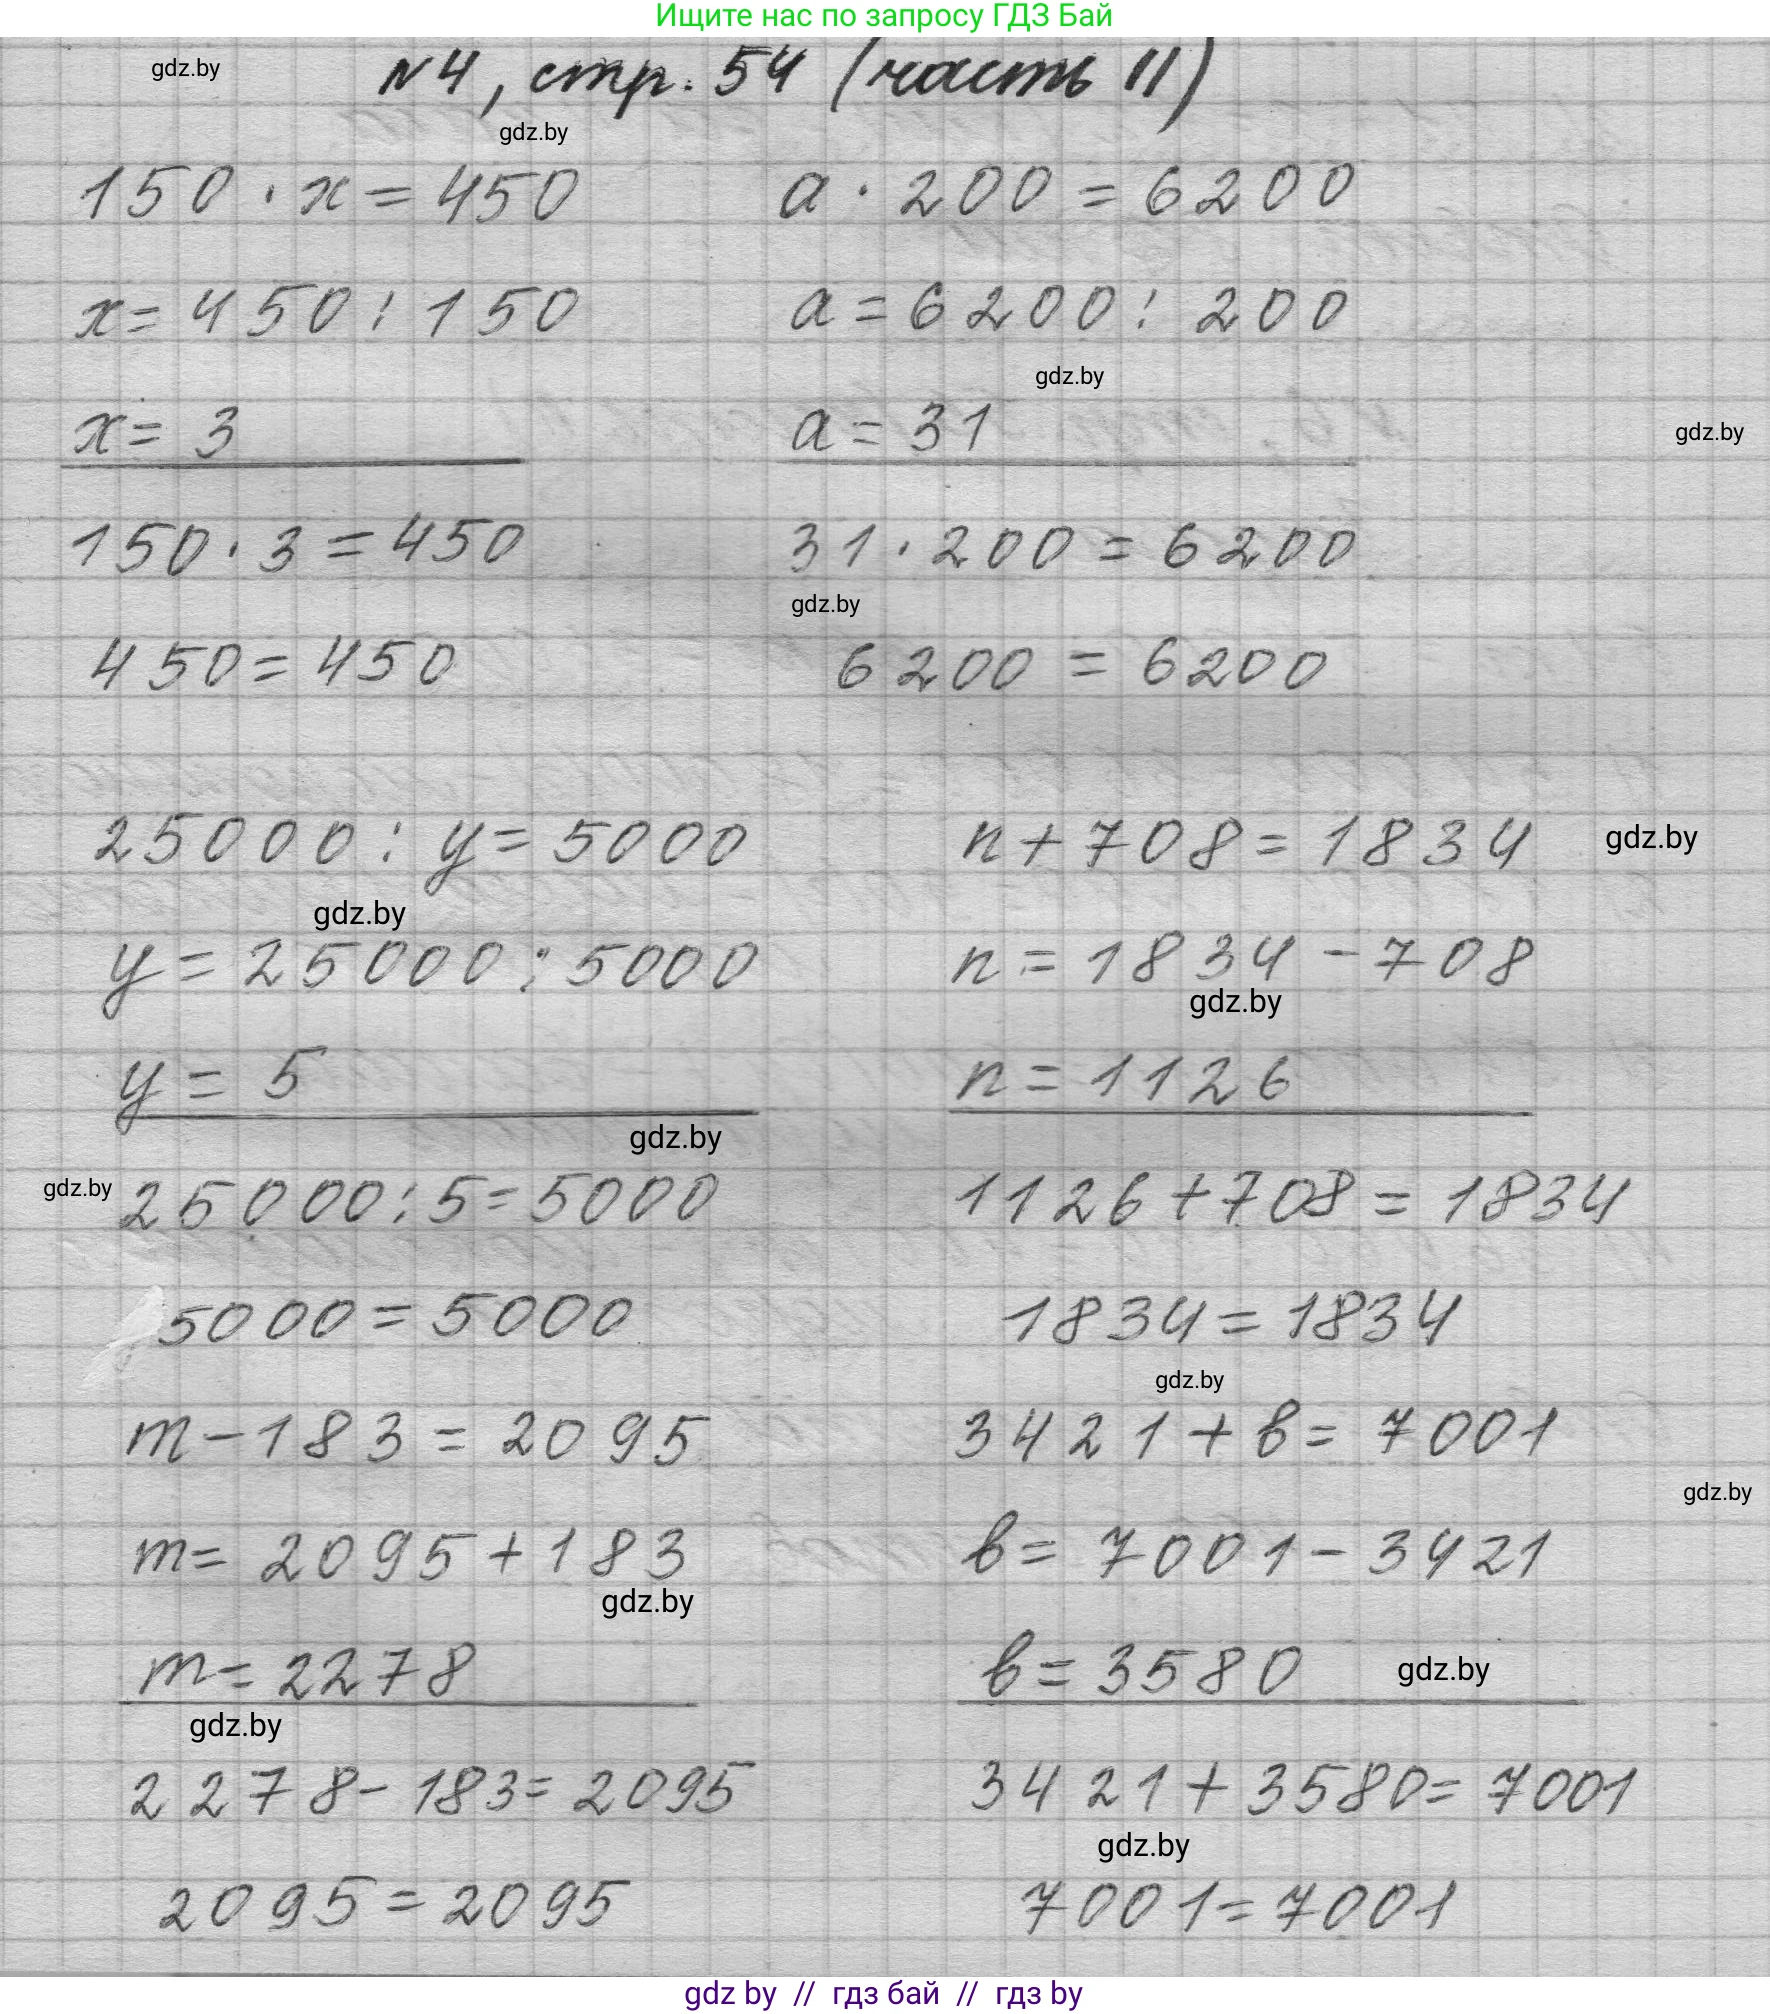 Ищите нас по запросу ГДЗ Бай
gdz.by
№4, стр. 54 (часть II)
gdz.by
150 · x = 450
a · 200 = 6200
x = 450 : 150
a = 6200 : 200
gdz.by
x = 3
a = 31
gdz.by
150 · 3 = 450
31 · 200 = 6200
gdz.by
450 = 450
6200 = 6200
25000 : y = 5000
n + 708 = 1834
gdz.by
gdz.by
y = 25000 : 5000
n = 1834 - 708
gdz.by
y = 5
n = 1126
gdz.by
gdz.by
25000 : 5 = 5000
1126 + 708 = 1834
5000 = 5000
1834 = 1834
gdz.by
m - 183 = 2095
3421 + b = 7001
gdz.by
m = 2095 + 183
b = 7001 - 3421
gdz.by
m = 2278
b = 3580
gdz.by
gdz.by
2278 - 183 = 2095
3421 + 3580 = 7001
gdz.by
2095 = 2095
7001 = 7001
gdz by // гдз бай // гдз by